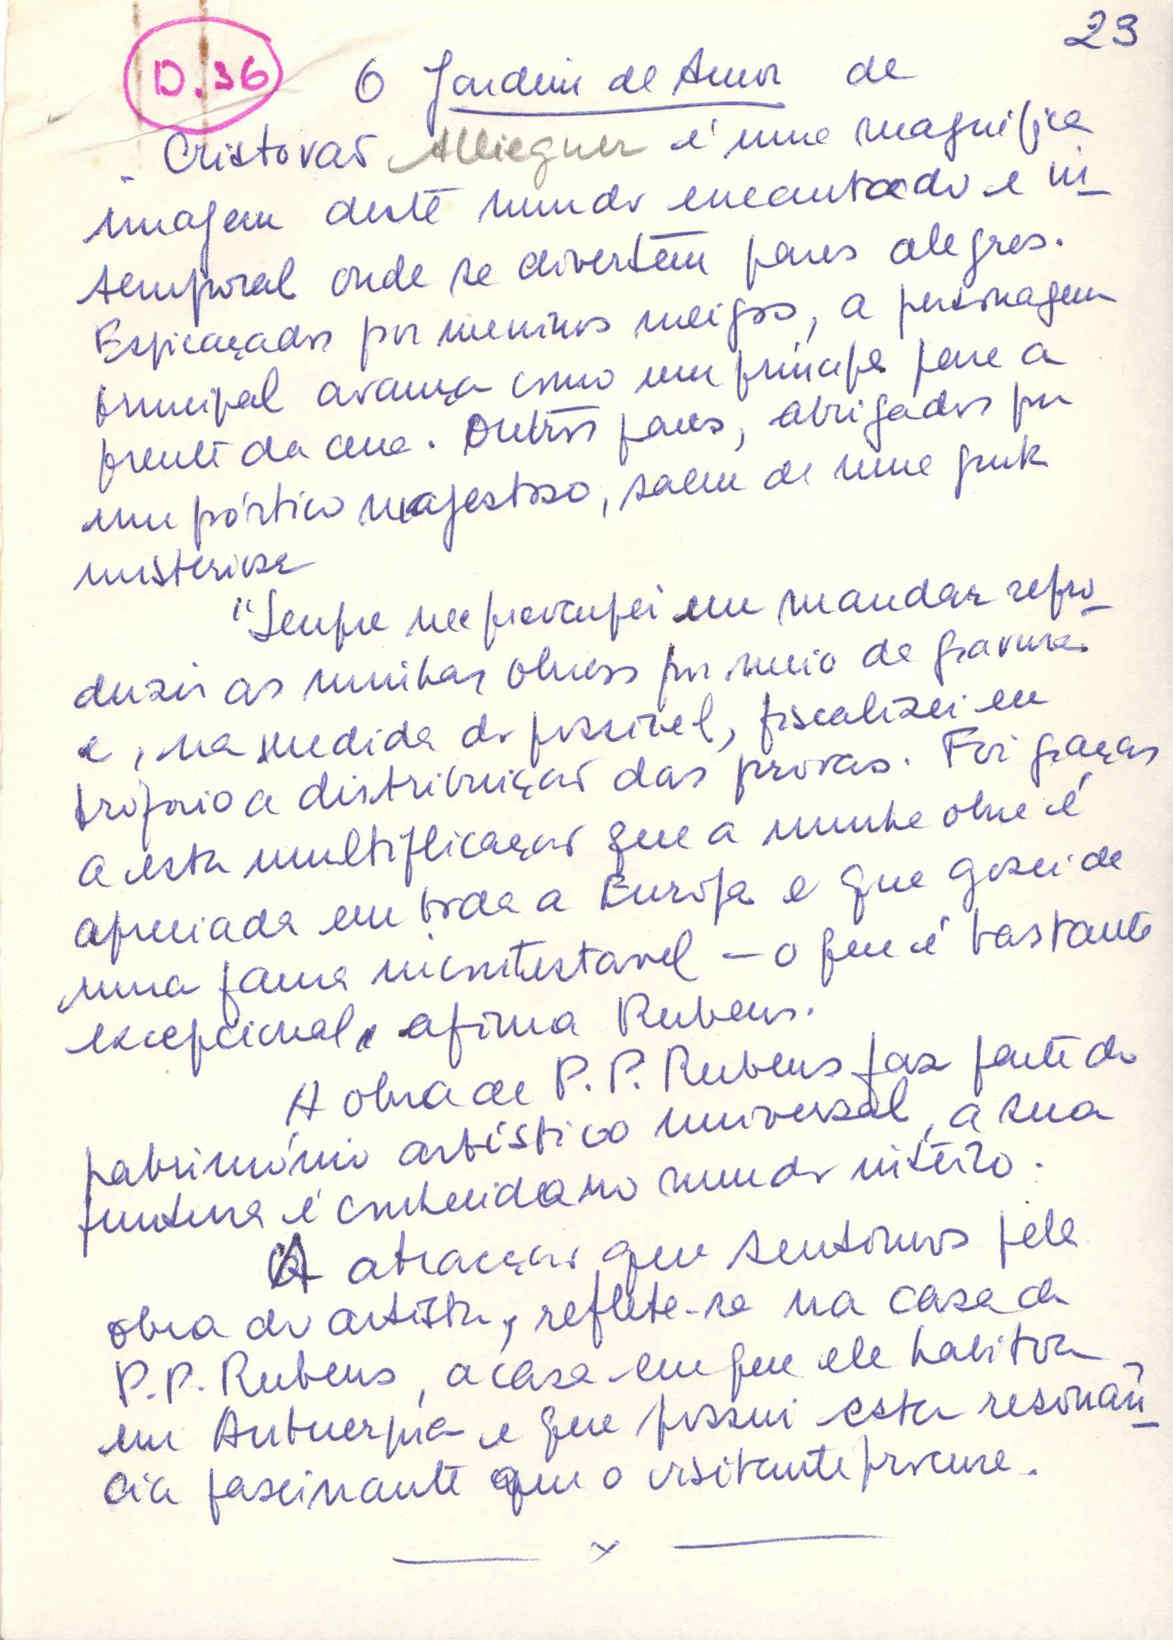 23
D.36
O Jardim de Amor de
Cristovaõ é uma magnifica
imagem deste mundo encantado e in_
temporal onde se divertem pares alegres.
Espicaçados por meninos meigos, a personagem
principal avança como um principe para a
frente da cena. Outros pares, abrigados por
um pórtico majestoso, saem de uma gruta
misteriosa
"Sempre me preocupei em mandar repro_
duzir as minhas obras por meio de gravuras
e, na medida do possivel, fiscalizei eu
próprio a distribuiçaõ das provas. Foi graças
a esta multiplicaçaõ que a minha obra é
apreciada em toda a Europa e que gozei de
uma fama incontestavel — o que é bastante
excepcional, afirma Rubens.
A obra de P. P. Rubens faz parte do
património artístico universal, a sua
pintura é conhecida no mundo inteiro.
A atracçaõ que sentimos pela
obra do artista, reflete-se na casa de
P.P. Rubens, a casa em que ele habitou
em Antuerpia e que possui esta resonân_
cia fascinante que o visitante procura.
x